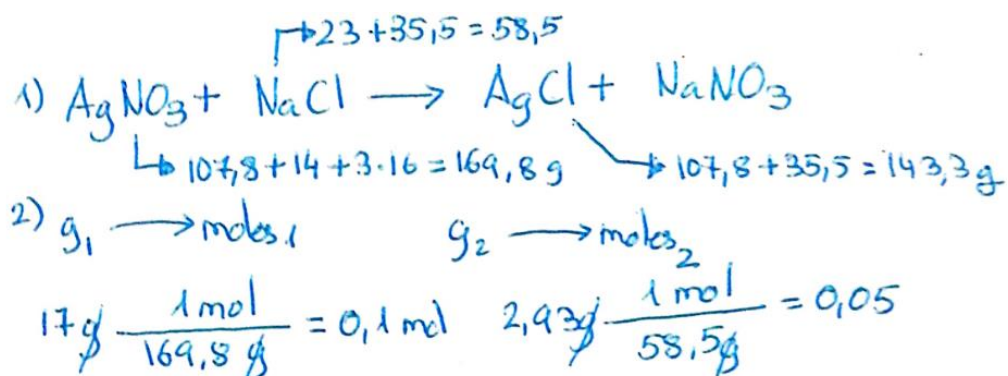 ↳ 23 + 35,5 = 58,5
1) AgNO₃ + NaCl ⟶ AgCl + NaNO₃
↳ 107,8 + 14 + 3·16 = 169,8 g → 107,8 + 35,5 = 143,3 g
2) g₁ ⟶ moles₁ g₂ ⟶ moles₂
17 g 1 mol / 169,8 g = 0,1 mol 2,93 g 1 mol / 58,5 g = 0,05